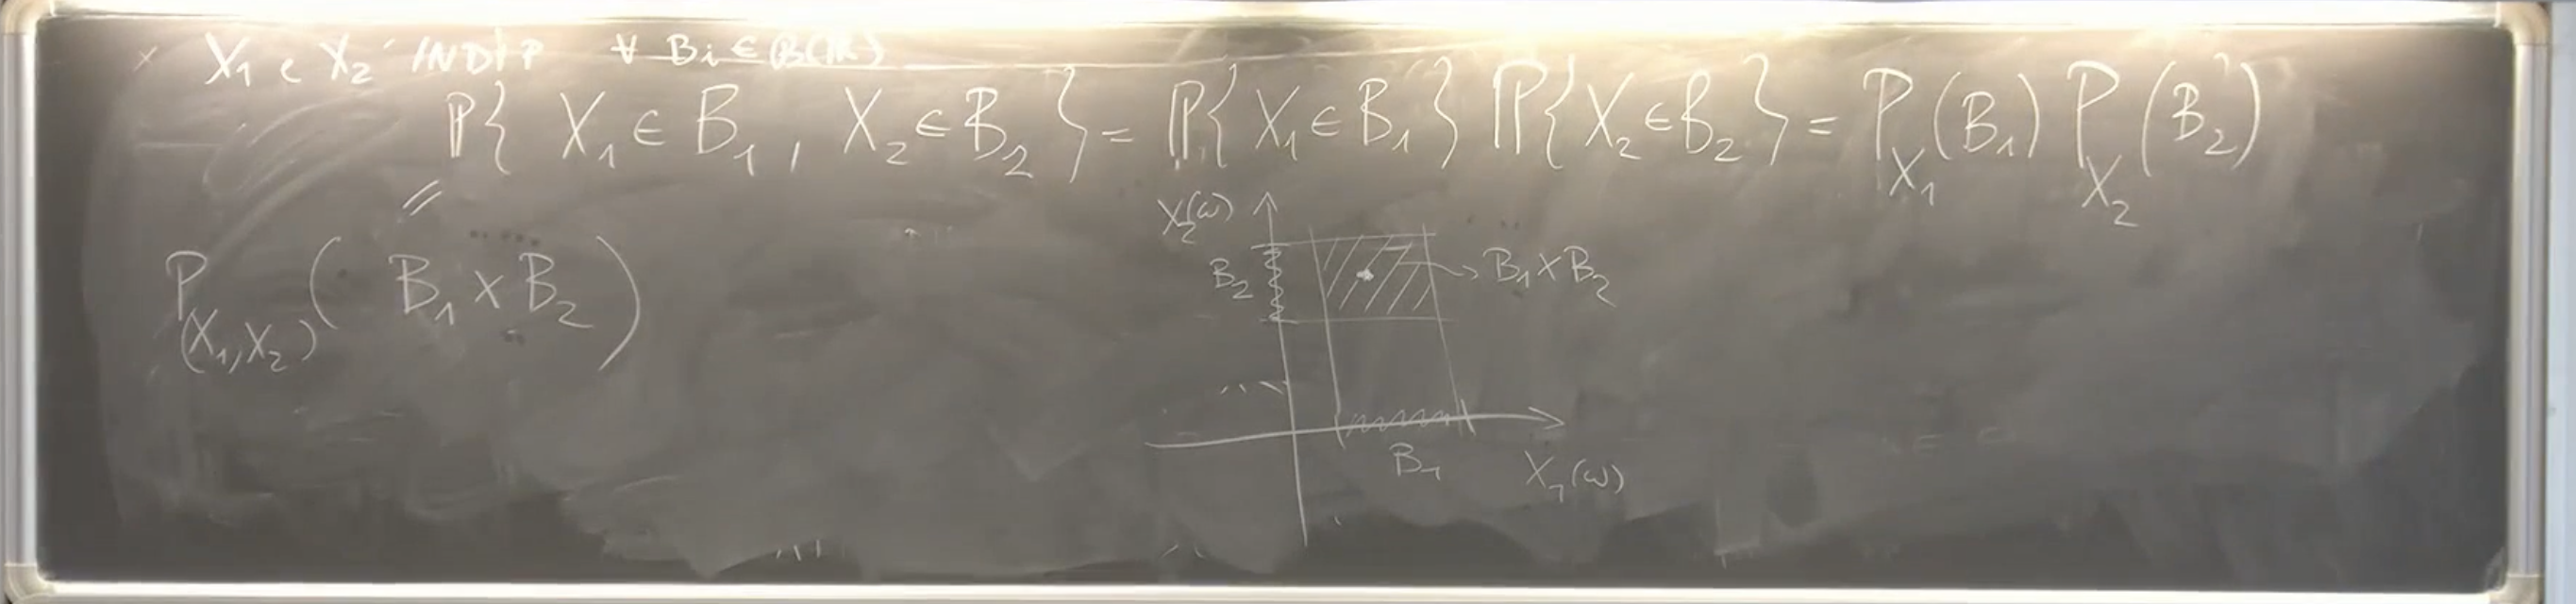 X₁ e X₂ INDIP ∀ Bi ∈ B(ℝ)
ℙ{ X₁ ∈ B₁ , X₂ ∈ B₂ } = ℙ{ X₁ ∈ B₁ } ℙ{ X₂ ∈ B₂ } = P_X₁ (B₁) P_X₂ (B₂)
=
P_(X₁,X₂) ( B₁ × B₂ )
X₂(ω)
B₂
B₁ × B₂
B₁
X₁(ω)